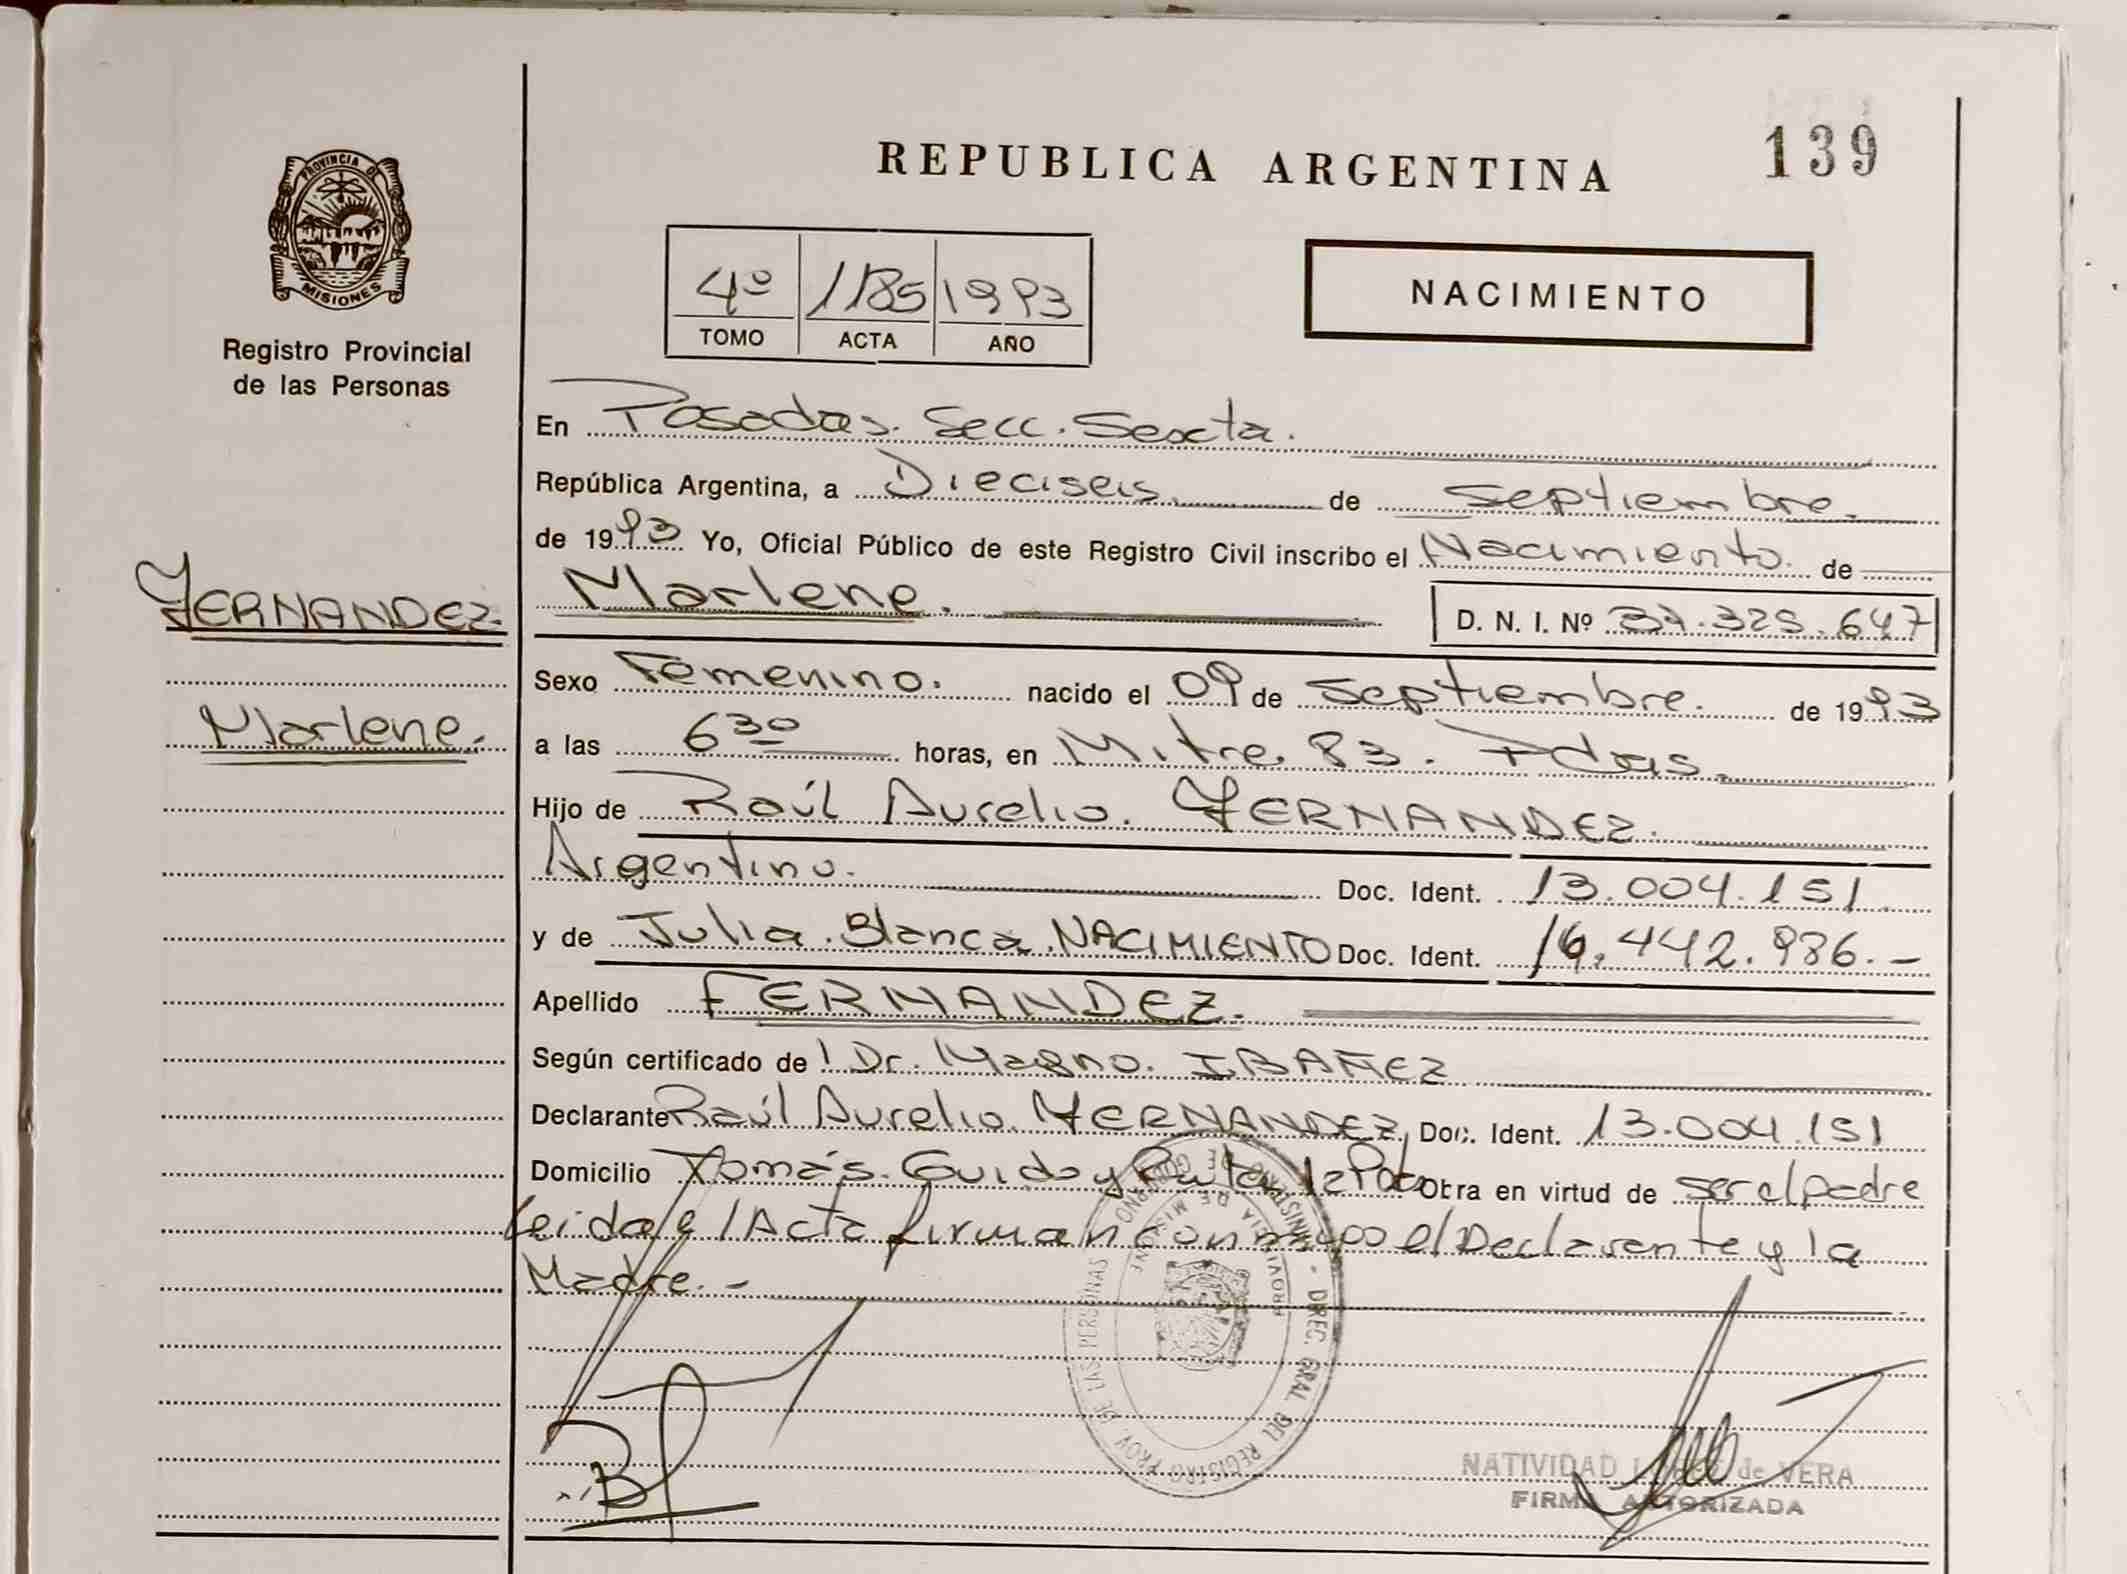 139
REPUBLICA ARGENTINA
PROVINCIA DE
MISIONES
Registro Provincial
de las Personas
4º 1185 1993
TOMO ACTA AÑO
NACIMIENTO
En Posadas. Secc. Sexta.
República Argentina, a Dieciseis de Septiembre.
de 1993 Yo, Oficial Público de este Registro Civil inscribo el Nacimiento. de
FERNANDEZ
Marlene.
Marlene. D. N. I. Nº 37.325.647
Sexo Femenino. nacido el 09 de Septiembre. de 1993
a las 6 30 horas, en Mitre 83. Pdas.
Hijo de Raúl Aurelio. FERNANDEZ.
Argentino. Doc. Ident. 13.004.151
y de Julia. Blanca. NACIMIENTO Doc. Ident. 16.442.986.-
Apellido FERNANDEZ.
Según certificado de l Dr. Magno. IBAÑEZ
Declarante Raúl Aurelio. FERNANDEZ, Doc. Ident. 13.004.151
Domicilio Tomás. Guido y Obra en virtud de ser el padre
Leida el Acta firman conmigo el Declarante y la
Madre.-
MINISTERIO DE GOBIERNO - DIREC. GRAL. DEL REGISTRO PROV. DE LAS PERSONAS
PROVINCIA DE MISIONES
NATIVIDAD de VERA
FIRMA AUTORIZADA